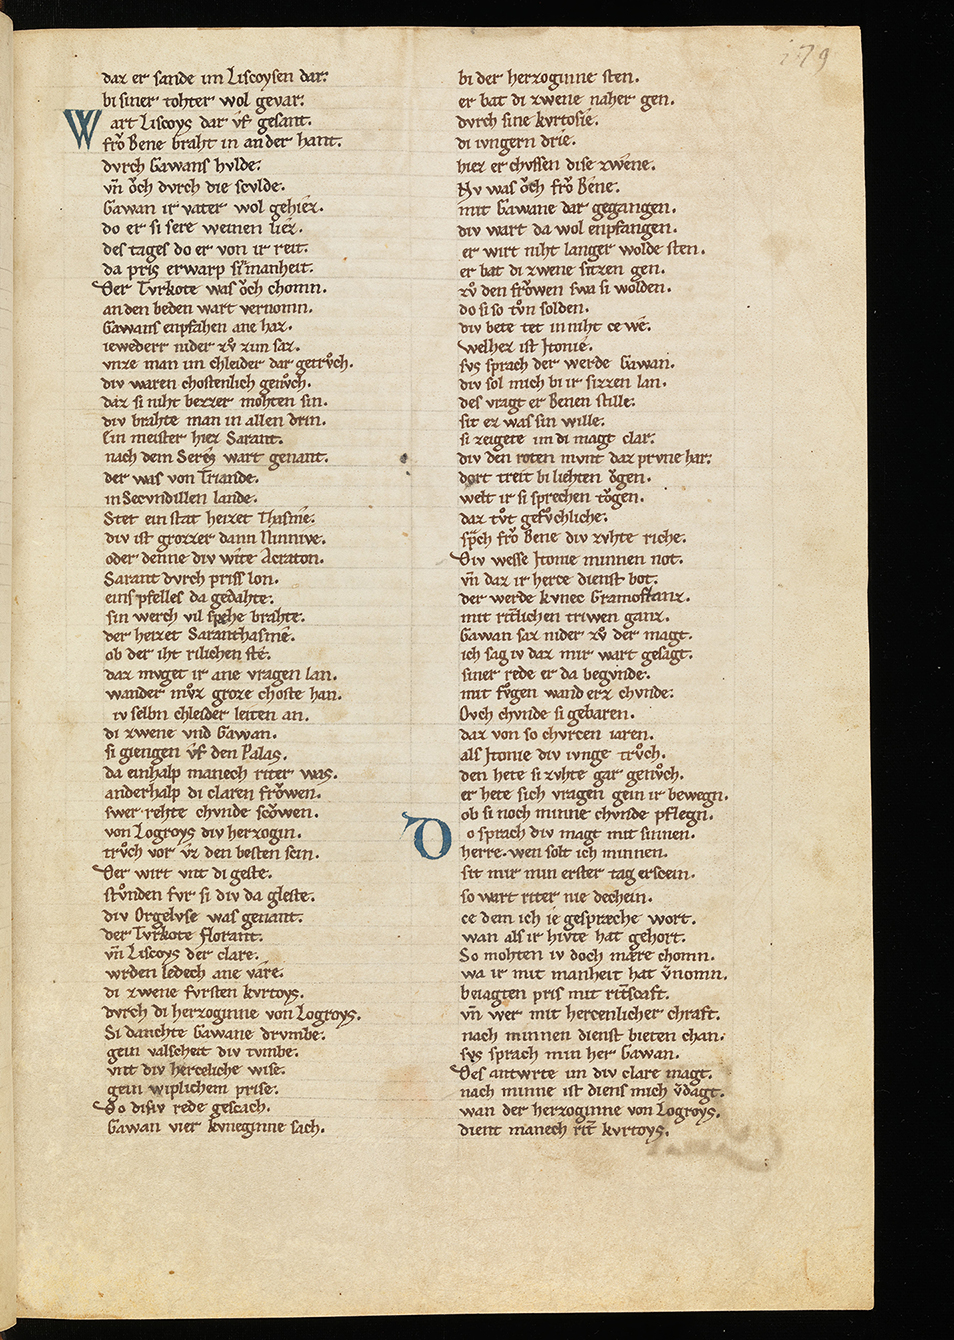 279
daz er sande im Liscoysen dar:
bi siner tohter wol gevar:
Wart Liscoys dar v̂f gesant.
frŏ Bene braht in an der hant.
dvrch Gawans hvlde:
vn̄ ŏch dvrch die scvlde.
Gawan ir vater wol gehiez.
do er si sere weinen liez.
des tages do er von ir reit.
da pris erwarp sin manheit.
Der Tvrkote was ŏch chomn.
an den beden wart vernomn.
Gawans enpfahen ane haz.
iewederr nider zv̊ zim saz.
vnze man im chleider dar getrv̊ch.
div waren chostenlich genv̊ch.
daz si niht bezzer mohten sin.
div brahte man in allen drin.
Ein meister hiez Sarant.
nach dem Seres wart genant.
der was von Triande.
in Secvndillen lande.
Stet ein stat heizet Thasme.
div ist grozzer dann Ninnive.
oder denne div wite Acraton.
Sarant dvrch priss lon.
eins pfelles da gedahte.
sin werch vil spehe brahte.
der heizet Saranthasme.
ob der iht rilichen ste.
daz mvget ir ane vragen lan.
wander mv̊z groze choste han.
iv selbn chleider leiten an.
di zwene vnd Gawan.
si giengen v̂f den Palas.
da einhalp manech riter was.
anderhalp di claren frŏwen.
swer rehte chvnde scŏwen.
von Logroys div herzogin.
trv̊ch vor v̂z den besten scin.
Der wirt vnt di geste.
stv̊nden fvr si div da gleste.
div Orgelvse was genant.
der Tvrkote Florant.
vn̄ Liscoys der clare.
wrden ledech ane vare.
di zwene fvrsten kvrtoys.
dvrch di herzoginne von Logroys.
Si danchte Gawane drvmbe.
gein valscheit div tvmbe.
vnt div herceliche wise.
gein wiplichem prise.
Do disiv rede gescach.
Gawan vier kvneginne sach.
bi der herzoginne sten.
er bat di zwene naher gen.
dvrch sine kvrtosie.
di ivngern drie.
hiez er chvssen dise zwene.
Nv was ŏch frŏ Bene.
mit Gawane dar gegangen.
div wart da wol enpfangen.
er wirt niht langer wolde sten.
er bat di zwene sitzen gen.
zv̊ den frŏwen swa si wolden.
do si so tv̊n solden.
div bete tet in niht ce we.
welhez ist Itonie.
svs sprach der werde Gawan.
div sol mich bi ir sizzen lan.
des vragt er Benen stille.
sit ez was sin wille.
si zeigete im di magt clar.
div den roten mvnt daz prvne har.
dort treit bi liehten ŏgen.
welt ir si sprechen tŏgen.
daz tv̊t gefv̊chliche.
spch frŏ Bene div zvhte riche.
Div wesse Itonie minnen not.
vn̄ daz ir herce dienst bot.
der werde kvnec Gramoflanz.
mit ritlichen triwen ganz.
Gawan saz nider zv̊ der magt.
ich sag iv daz mir wart gesagt.
siner rede er da begvnde.
mit fv̊gen wand erz chvnde.
Ovch chvnde si gebaren.
daz von so chvrcen iaren.
als Itonie div ivnge trv̊ch.
den hete si zvhte gar genv̊ch.
er hete sich vragen gein ir bewegn.
ob si noch minne chvnde pflegn.
Do sprach div magt mit sinnen.
herre wen solt ich minnen.
sit mir min erster tag erscein.
so wart riter nie dechein.
ce dem ich ie gespræche wort.
wan als ir hivte hat gehort.
So mohten iv doch mære chomn.
wa ir mit manheit hat v̄nomn.
beiagten pris mit rit̄scaft.
vn̄ wer mit hercenlicher chraft.
nach minnen dienst bieten chan.
svs sprach min her Gawan.
Des antwrte im div clare magt.
nach minne ist diens mich v̄dagt.
wan der herzoginne von Logroys.
dient manech rit̄ kvrtoys.